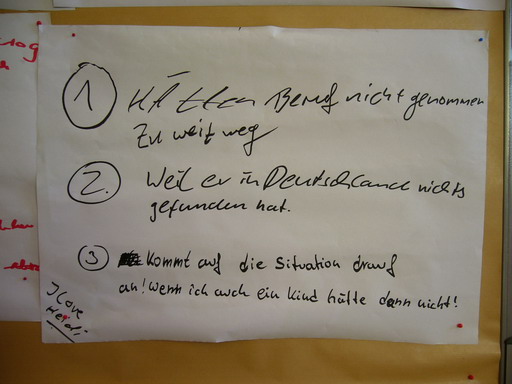 1 Hätten Beruf nicht genommen
Zu weit weg
2. Weil er in Deutschland nichts
gefunden hat.
3 Kommt auf die Situation drauf
an! Wenn ich auch ein Kind hätte dann nicht!
I Love
Heidi